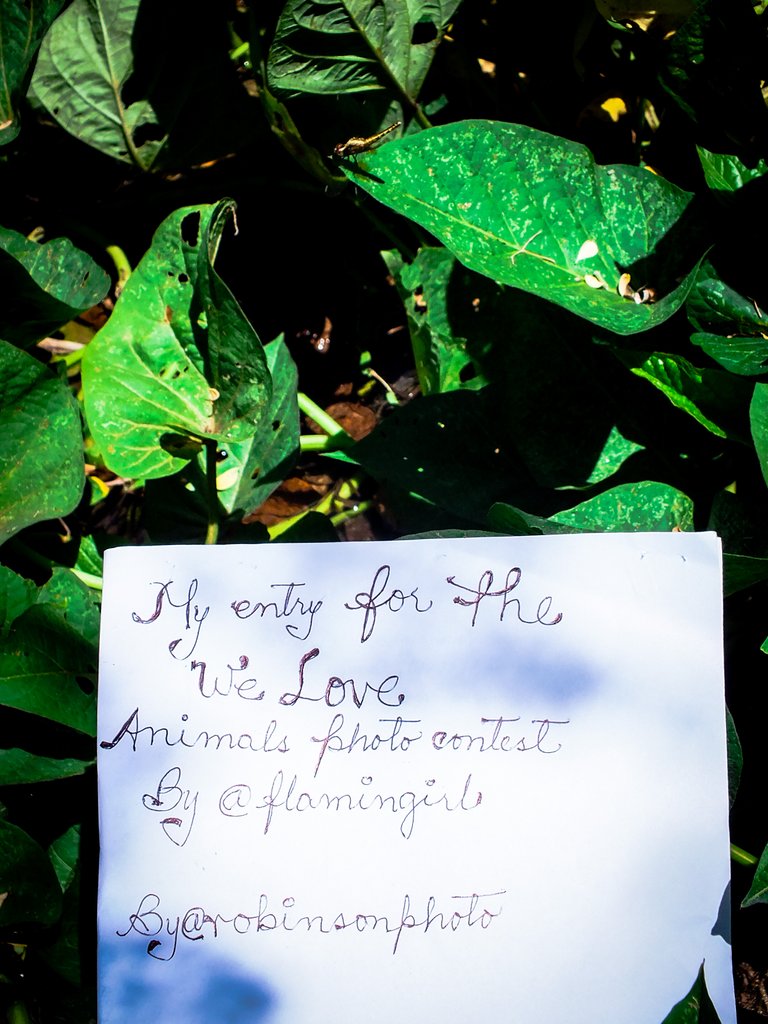 My entry for the
We Love
Animals photo contest
By @flamingirl
By@robinsonphoto